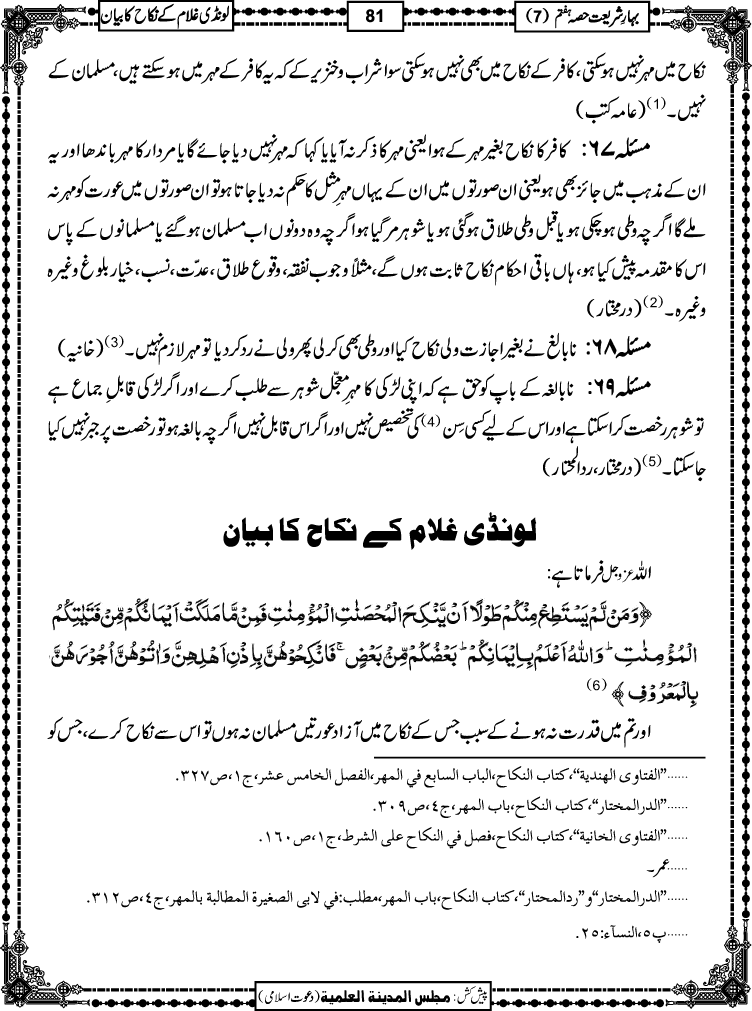 بہارِ شریعت حصہ ہفتم (7)
81
لونڈی غلام کے نکاح کا بیان
نکاح میں مہر نہیں ہوسکتی، کافر کے نکاح میں بھی نہیں ہوسکتی سوا شراب و خنزیر کے کہ یہ کافر کے مہر میں ہوسکتے ہیں، مسلمان کے
نہیں۔(1) (عامہ کتب)
مسئلہ ۶۷: کافر کا نکاح بغیر مہر کے ہوا یعنی مہر کا ذکر نہ آیا یا کہا کہ مہر نہیں دیا جائے گا یا مردار کا مہر باندھا اور یہ
ان کے مذہب میں جائز بھی ہو یعنی ان صورتوں میں ان کے یہاں مہرِ مثل کا حکم نہ دیا جاتا ہو تو ان صورتوں میں عورت کو مہر نہ
ملے گا اگرچہ وطی ہوچکی ہو یا قبل وطی طلاق ہوگئی ہو یا شوہر مرگیا ہو اگرچہ وہ دونوں اب مسلمان ہوگئے یا مسلمانوں کے پاس
اس کا مقدمہ پیش کیا ہو، ہاں باقی احکام نکاح ثابت ہوں گے، مثلاً وجوبِ نفقہ، وقوع طلاق، عدّت، نسب، خیار بلوغ وغیرہ
وغیرہ۔(2) (درمختار)
مسئلہ ۶۸: نابالغ نے بغیر اجازت ولی نکاح کیا اور وطی بھی کرلی پھر ولی نے رد کردیا تو مہر لازم نہیں۔(3) (خانیہ)
مسئلہ ۶۹: نابالغہ کے باپ کو حق ہے کہ اپنی لڑکی کا مہرِ معجّل شوہر سے طلب کرے اور اگر لڑکی قابلِ جماع ہے
تو شوہر رخصت کراسکتا ہے اور اس کے لیے کسی سِن (4) کی تخصیص نہیں اور اگر اس قابل نہیں اگرچہ بالغہ ہو تو رخصت پر جبر نہیں کیا
جاسکتا۔(5) (درمختار، ردالمحتار)
لونڈی غلام کے نکاح کا بیان
اللہ عزوجل فرماتا ہے:
﴿وَمَنْ لَّمْ یَسْتَطِعْ مِنْكُمْ طَوْلًا اَنْ یَّنْكِحَ الْمُحْصَنٰتِ الْمُؤْمِنٰتِ فَمِنْ مَّا مَلَكَتْ اَیْمَانُكُمْ مِّنْ فَتَیٰتِكُمُ
الْمُؤْمِنٰتِ ؕ وَاللّٰهُ اَعْلَمُ بِاِیْمَانِكُمْ ؕ بَعْضُكُمْ مِّنْۢ بَعْضٍ ۚ فَانْكِحُوْهُنَّ بِاِذْنِ اَهْلِهِنَّ وَاٰتُوْهُنَّ اُجُوْرَهُنَّ
بِالْمَعْرُوْفِ﴾ (6)
اور تم میں قدرت نہ ہونے کے سبب جس کے نکاح میں آزاد عورتیں مسلمان نہ ہوں تو اس سے نکاح کرے، جس کو
......"الفتاوی الهندية"، کتاب النكاح، الباب السابع في المهر، الفصل الخامس عشر، ج١، ص٣٢٧.
......"الدرالمختار"، كتاب النكاح، باب المهر، ج٤، ص٣٠٩.
......"الفتاوی الخانية"، كتاب النكاح، فصل في النكاح على الشرط، ج١، ص١٦٠.
......عمر۔
......"الدرالمختار" و"ردالمحتار"، كتاب النكاح، باب المهر، مطلب: في لابی الصغيرة المطالبة بالمهر، ج٤، ص٣١٢.
......پ٥، النسآء: ٢٥.
پیش کش: مجلس المدينة العلمية (دعوتِ اسلامی)